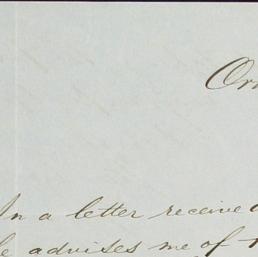 In a letter received
advises me of